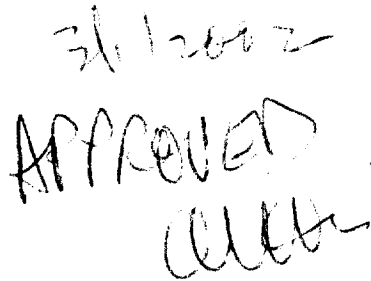 3/1/2002
APPROVED